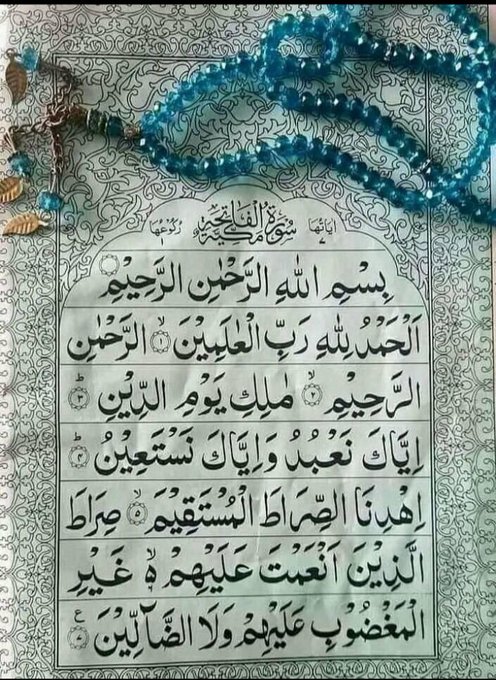 اٰيَاتُهَا ٧ سُوْرَةُ الْفَاتِحَةِ مَكِّيَّةٌ رُكُوْعُهَا ١
بِسْمِ اللّٰهِ الرَّحْمٰنِ الرَّحِيْمِ
اَلْحَمْدُ لِلّٰهِ رَبِّ الْعٰلَمِيْنَ ۙ﴿۱﴾ الرَّحْمٰنِ
الرَّحِيْمِ ۙ﴿۲﴾ مٰلِكِ يَوْمِ الدِّيْنِ ؕ﴿۳﴾
اِيَّاكَ نَعْبُدُ وَاِيَّاكَ نَسْتَعِيْنُ ؕ﴿۴﴾
اِهْدِنَا الصِّرَاطَ الْمُسْتَقِيْمَ ۙ﴿۵﴾ صِرَاطَ
الَّذِيْنَ اَنْعَمْتَ عَلَيْهِمْ ۙ۬ غَيْرِ
الْمَغْضُوْبِ عَلَيْهِمْ وَلَا الضَّآلِّيْنَ ﴿۷﴾ ع